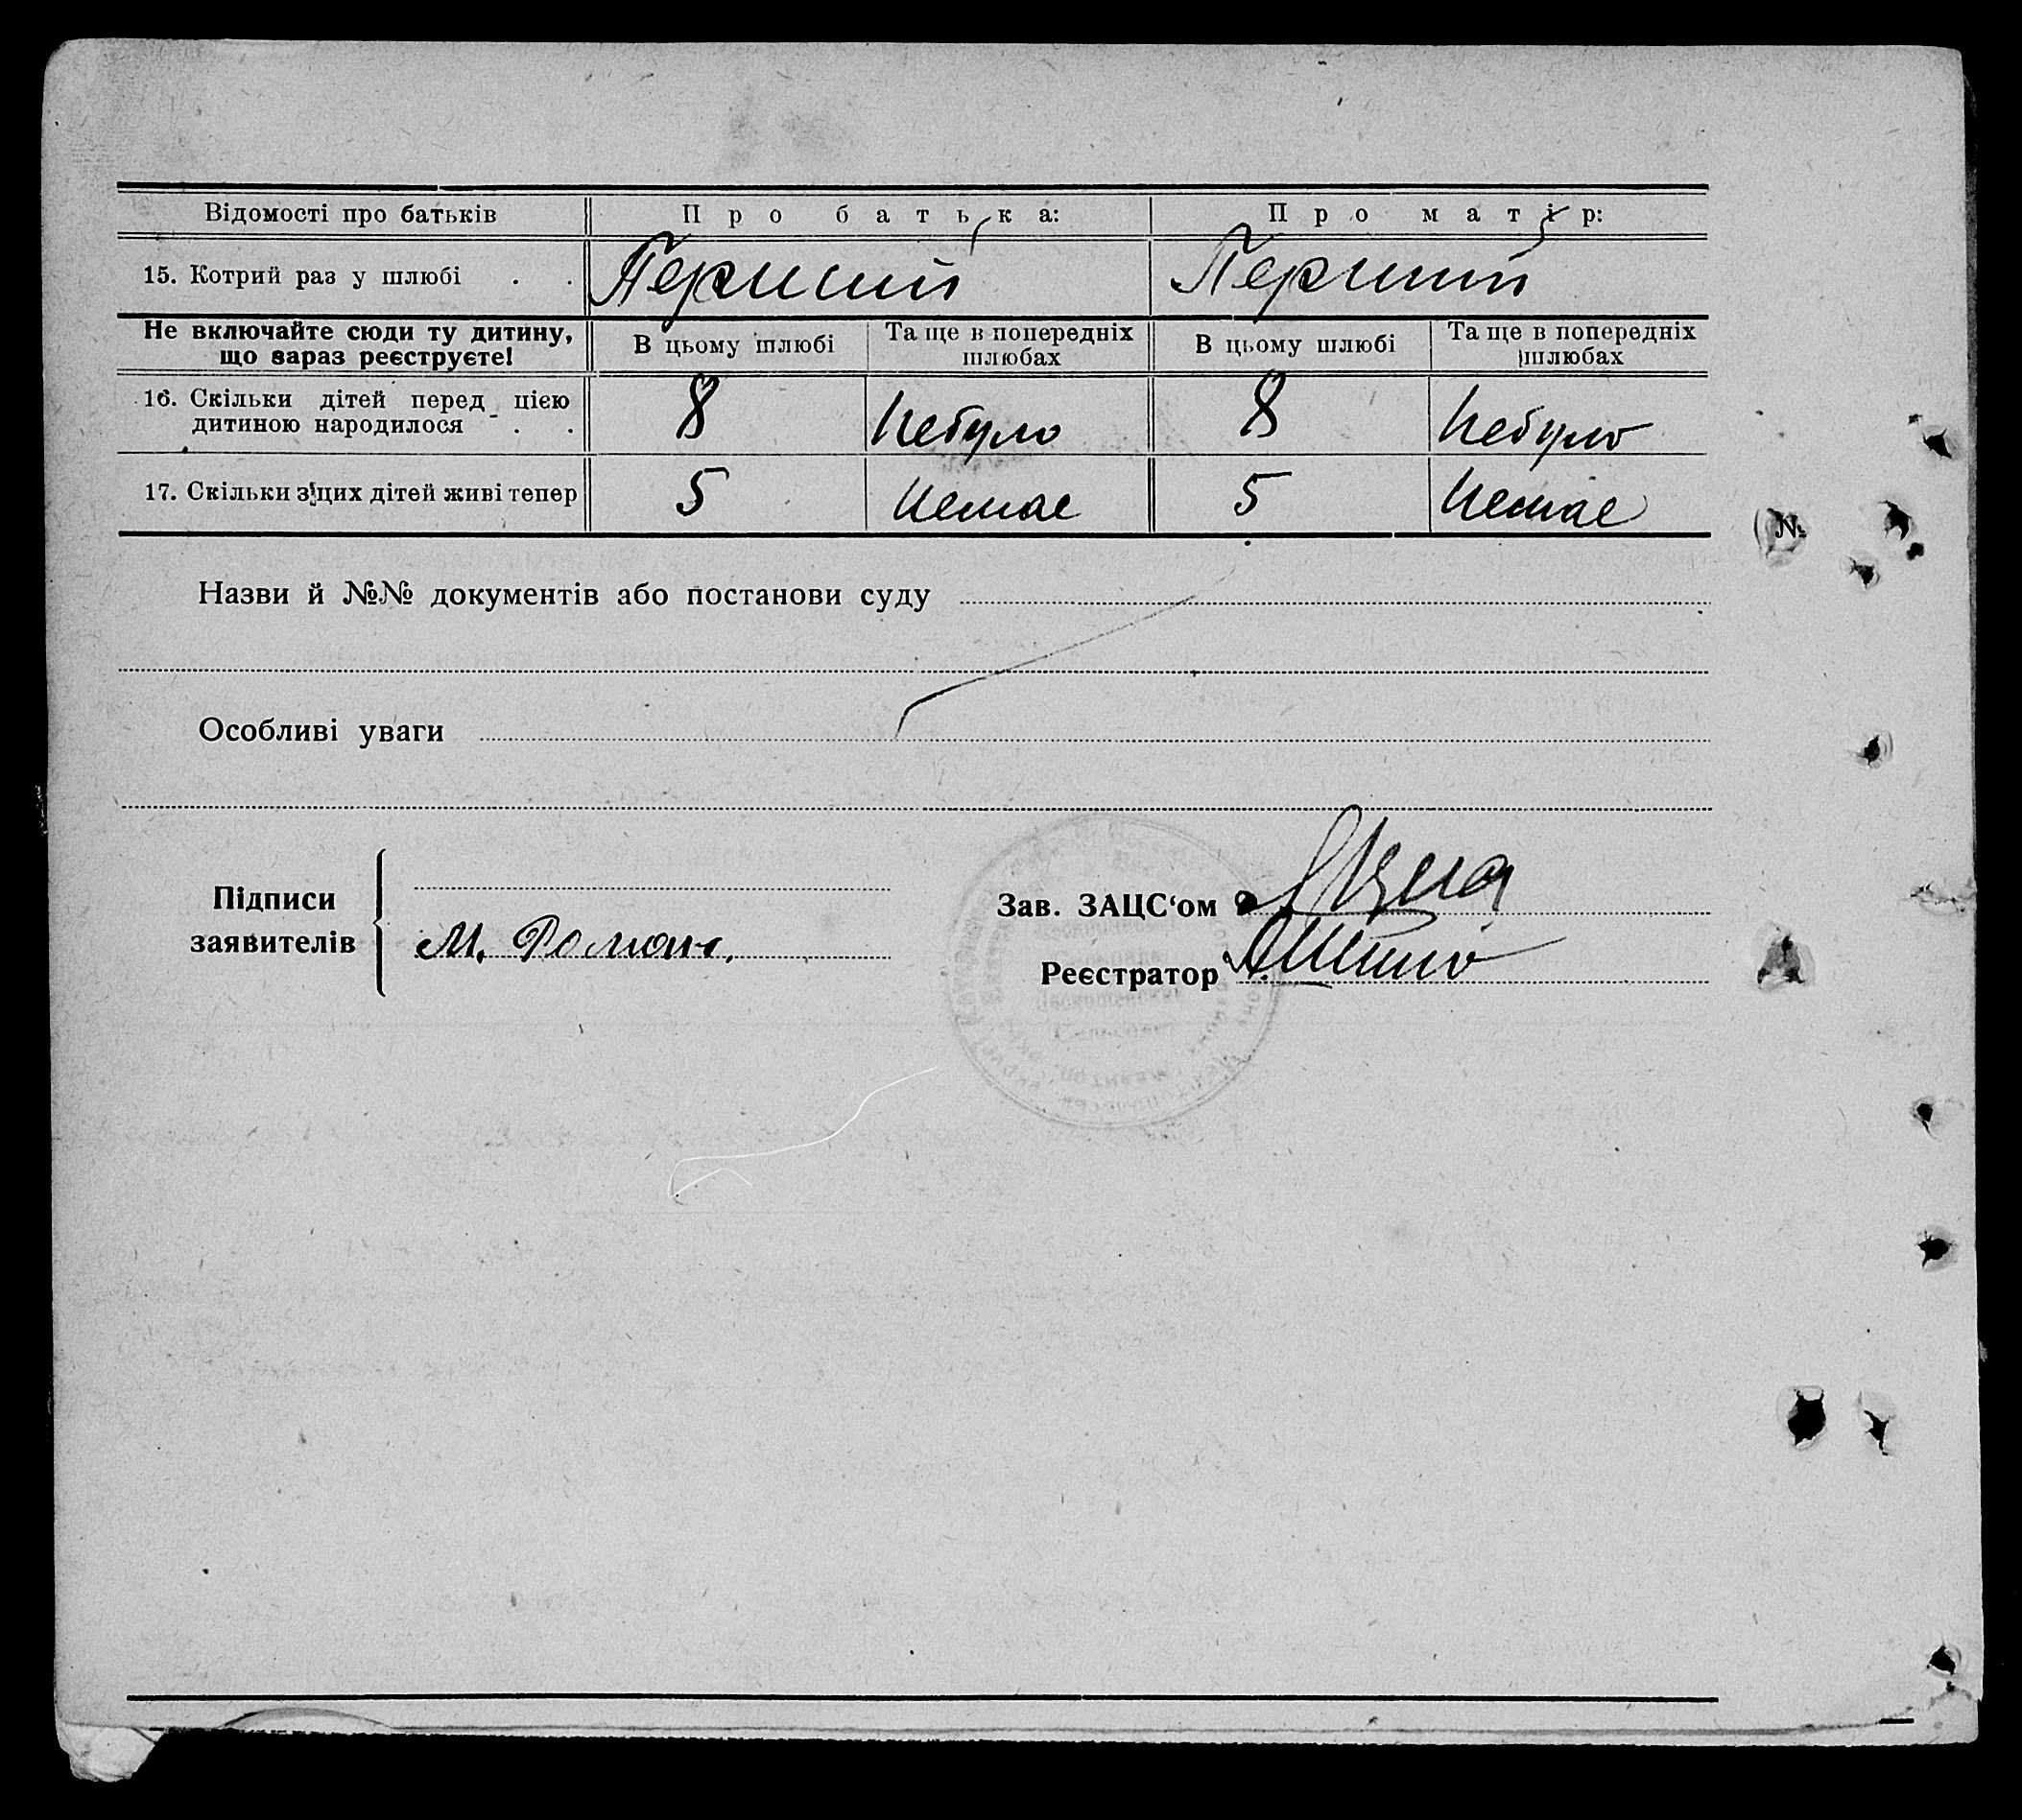 Відомості про батьків Про батька: Про матір:
15. Котрий раз у шлюбі . . Перший Перший
Не включайте сюди ту дитину, що зараз реєструєте! В цьому шлюбі Та ще в попередніх шлюбах В цьому шлюбі Та ще в попередніх шлюбах
16. Скільки дітей перед цією дитиною народилося . . 8 Небуло 8 Небуло
17. Скільки з цих дітей живі тепер 5 Немає 5 Немає
№
Назви й №№ документів або постанови суду
Особливі уваги
Підписи заявителів
М. Роман.
Зав. ЗАЦС‘ом
Реєстратор